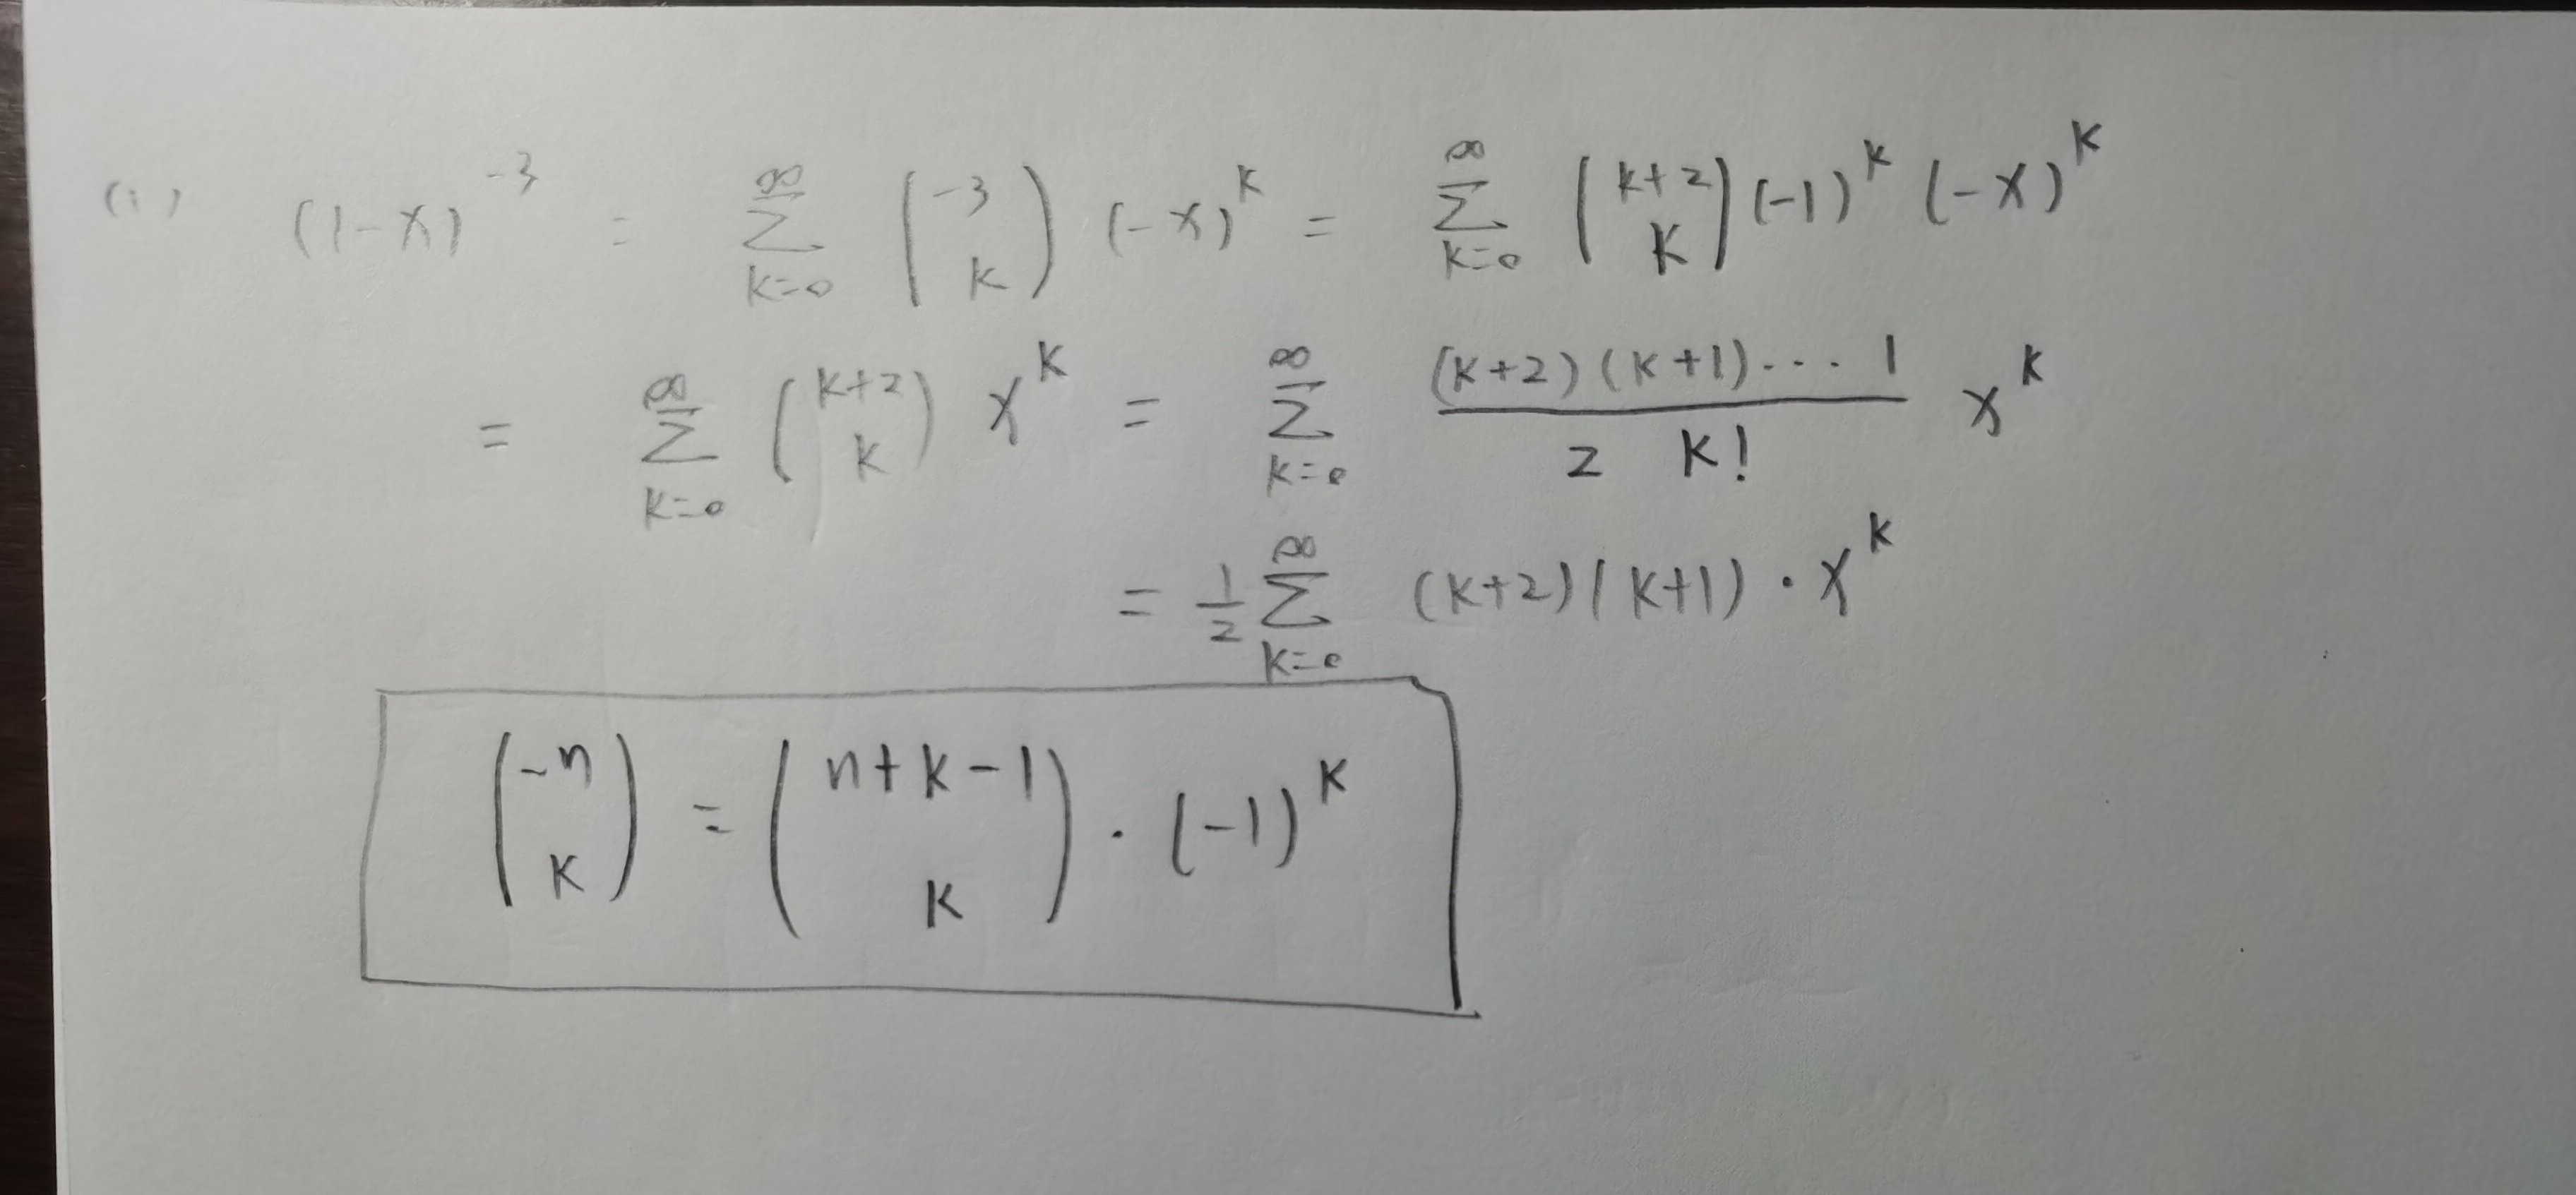 (i) (1-x)^{-3} = \sum_{k=0}^{\infty} \binom{-3}{k} (-x)^k = \sum_{k=0}^{\infty} \binom{k+2}{k} (-1)^k (-x)^k
= \sum_{k=0}^{\infty} \binom{k+2}{k} x^k = \sum_{k=0}^{\infty} \frac{(k+2)(k+1)\cdots 1}{2 \ k!} x^k
= \frac{1}{2} \sum_{k=0}^{\infty} (k+2)(k+1) \cdot x^k
\binom{-n}{k} = \binom{n+k-1}{k} \cdot (-1)^k